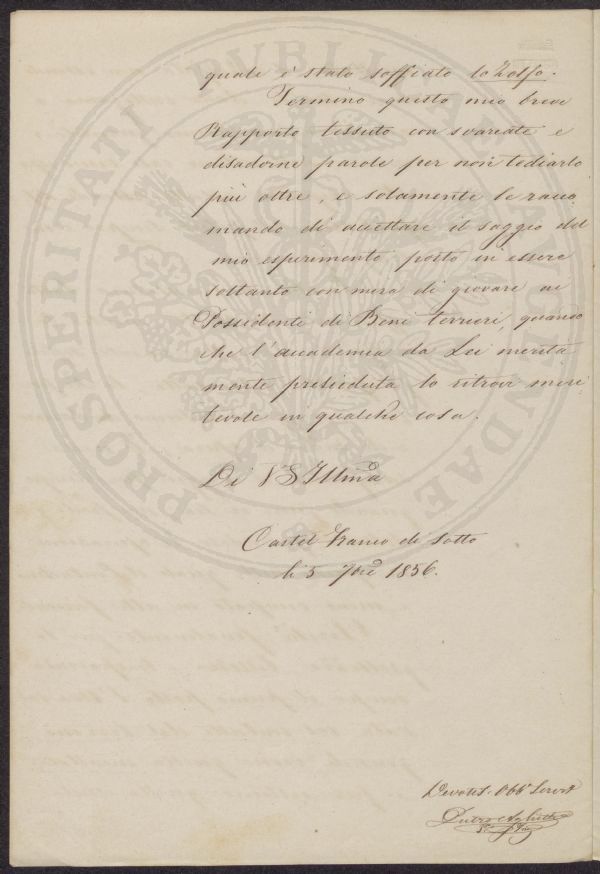 quale è stato soffiato lo Zolfo.
Termino questo mio breve
Rapporto tessuto con svariate e
disadorne parole per non tediarlo
più oltre, e solamente le racco
mando di accettare il saggio del
mio esperimento posto in essere
soltanto con mira di giovare ai
Possidenti di Beni terrieri, quando
che l'accademia da Lei merita
mente presieduta lo ritrovi meri
tevole in qualche cosa.
Di V S Illma
Castel Franco di Sotto
li 5 7bre 1856.
Devotis. Obb. Servit
Pietro
PROSPERITATI PVBLICAE AVGENDAE